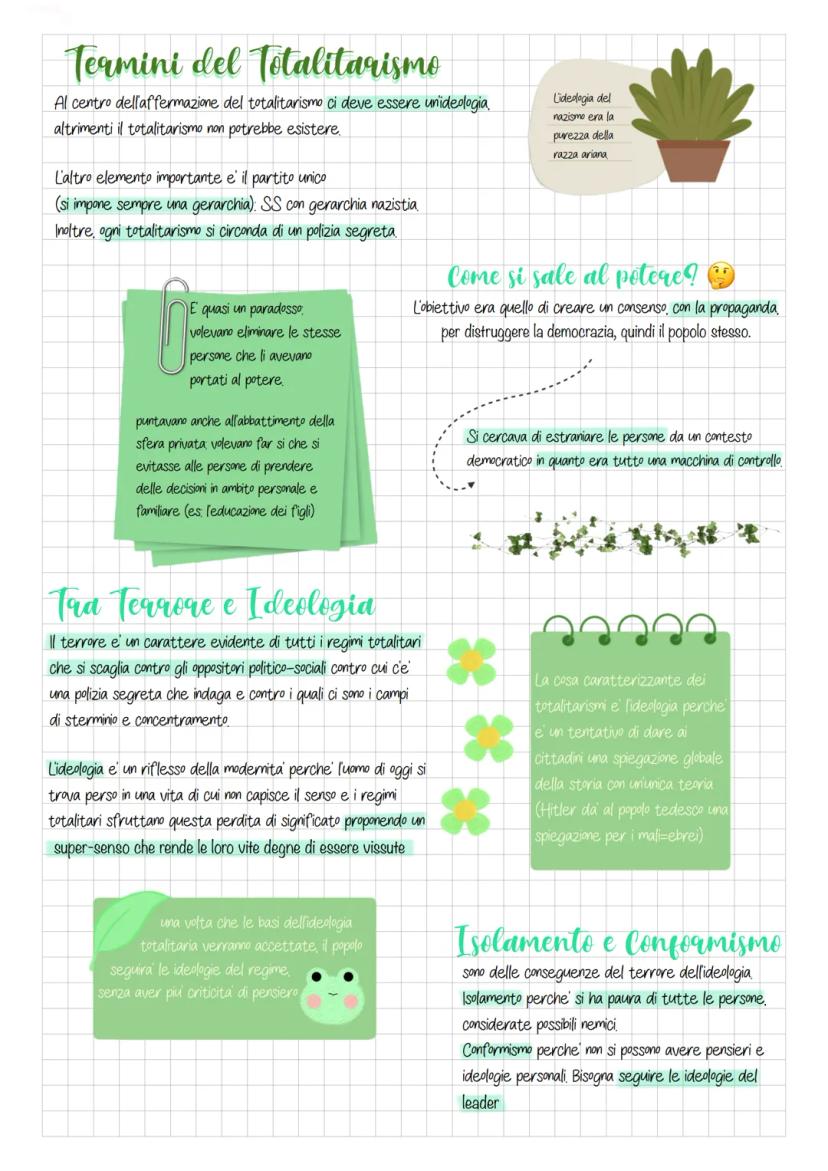 Termini del Totalitarismo
Al centro dell'affermazione del totalitarismo ci deve essere un'ideologia,
altrimenti il totalitarismo non potrebbe esistere.
L'ideologia del
nazismo era la
purezza della
razza ariana
L'altro elemento importante e' il partito unico
(si impone sempre una gerarchia): SS con gerarchia nazistia.
Inoltre, ogni totalitarismo si circonda di un polizia segreta.
Come si sale al potere? 🤔
L'obiettivo era quello di creare un consenso, con la propaganda,
per distruggere la democrazia, quindi il popolo stesso.
E' quasi un paradosso:
volevano eliminare le stesse
persone che li avevano
portati al potere.
puntavano anche all'abbattimento della
sfera privata: volevano far si che si
evitasse alle persone di prendere
delle decisioni in ambito personale e
familiare (es: l'educazione dei figli)
Si cercava di estraniare le persone da un contesto
democratico in quanto era tutto una macchina di controllo.
Tra Terrore e Ideologia
Il terrore e' un carattere evidente di tutti i regimi totalitari
che si scaglia contro gli oppositori politico-sociali contro cui c'e'
una polizia segreta che indaga e contro i quali ci sono i campi
di sterminio e concentramento.
L'ideologia e' un riflesso della modernita' perche' l'uomo di oggi si
trova perso in una vita di cui non capisce il senso e i regimi
totalitari sfruttano questa perdita di significato proponendo un
super-senso che rende le loro vite degne di essere vissute
La cosa caratterizzante dei
totalitarismi e' l'ideologia perche'
e' un tentativo di dare ai
cittadini una spiegazione globale
della storia con un'unica teoria
(Hitler da' al popolo tedesco una
spiegazione per i mali=ebrei)
una volta che le basi dell'ideologia
totalitaria verranno accettate, il popolo
seguira' le ideologie del regime,
senza aver piu' criticita' di pensiero
Isolamento e Conformismo
sono delle conseguenze del terrore dell'ideologia.
Isolamento perche' si ha paura di tutte le persone,
considerate possibili nemici.
Conformismo perche' non si possono avere pensieri e
ideologie personali. Bisogna seguire le ideologie del
leader